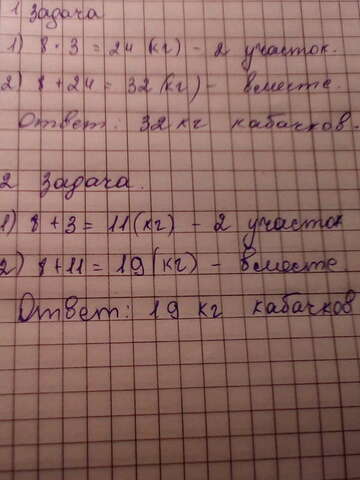 1 задача
1) 8 · 3 = 24 (кг) - 2 участок.
2) 8 + 24 = 32 (кг) - вместе.
Ответ: 32 кг кабачков.
2 задача.
1) 8 + 3 = 11 (кг) - 2 участок
2) 8 + 11 = 19 (кг) - вместе
Ответ: 19 кг кабачков